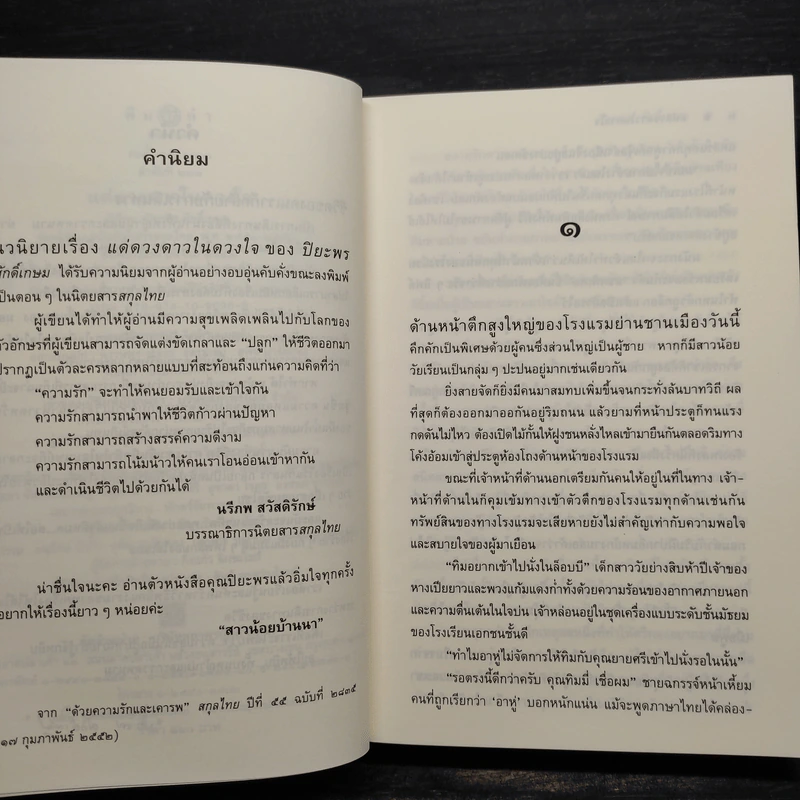 คำนิยม
นวนิยายเรื่อง แด่ดวงดาวในดวงใจ ของ ปิยะพร
ศักดิ์เกษม ได้รับความนิยมจากผู้อ่านอย่างอบอุ่นคับคั่งขณะลงพิมพ์
เป็นตอน ๆ ในนิตยสารสกุลไทย
ผู้เขียนได้ทำให้ผู้อ่านมีความสุขเพลิดเพลินไปกับโลกของ
ตัวอักษรที่ผู้เขียนสามารถจัดแต่งขัดเกลาและ “ปลูก” ให้ชีวิตออกมา
ปรากฏเป็นตัวละครหลากหลายแบบที่สะท้อนถึงแก่นความคิดที่ว่า
“ความรัก” จะทำให้คนยอมรับและเข้าใจกัน
ความรักสามารถนำพาให้ชีวิตก้าวผ่านปัญหา
ความรักสามารถสร้างสรรค์ความดีงาม
ความรักสามารถโน้มน้าวให้คนเราโอนอ่อนเข้าหากัน
และดำเนินชีวิตไปด้วยกันได้
นรีภพ สวัสดิรักษ์
บรรณาธิการนิตยสารสกุลไทย
น่าชื่นใจนะคะ อ่านตัวหนังสือคุณปิยะพรแล้วอิ่มใจทุกครั้ง
อยากให้เรื่องนี้ยาว ๆ หน่อยค่ะ
“สาวน้อยบ้านนา”
จาก “ด้วยความรักและเคารพ” สกุลไทย ปีที่ ๕๕ ฉบับที่ ๒๘๓๕
๑๗ กุมภาพันธ์ ๒๕๕๒)
๑
ด้านหน้าตึกสูงใหญ่ของโรงแรมย่านชานเมืองวันนี้
คึกคักเป็นพิเศษด้วยผู้คนซึ่งส่วนใหญ่เป็นผู้ชาย หากก็มีสาวน้อย
วัยเรียนเป็นกลุ่ม ๆ ปะปนอยู่มากเช่นเดียวกัน
ยิ่งสายจัดก็ยิ่งมีคนมาสมทบเพิ่มขึ้นจนกระทั่งล้นบาทวิถี ผล
ที่สุดก็ต้องออกมาออกันอยู่ริมถนน แล้วยามที่หน้าประตูก็ทนแรง
กดดันไม่ไหว ต้องเปิดไม้กั้นให้ฝูงชนหลั่งไหลเข้ามายืนกันตลอดริมทาง
โค้งอ้อมเข้าสู่ประตูห้องโถงด้านหน้าของโรงแรม
ขณะที่เจ้าหน้าที่ด้านนอกเตรียมกันคนให้อยู่ในที่ในทาง เจ้า-
หน้าที่ด้านในก็คุมเข้มทางเข้าตัวตึกของโรงแรมทุกด้านเช่นกัน
ทรัพย์สินของทางโรงแรมจะเสียหายยังไม่สำคัญเท่ากับความพอใจ
และสบายใจของผู้มาเยือน
“ทิมอยากเข้าไปนั่งในล็อบบี” เด็กสาววัยย่างสิบห้าปีเจ้าของ
หางเปียยาวและพวงแก้มแดงก่ำทั้งด้วยความร้อนของอากาศภายนอก
และความตื่นเต้นในใจบ่น เจ้าหล่อนอยู่ในชุดเครื่องแบบระดับชั้นมัธยม
ของโรงเรียนเอกชนชั้นดี
“ทำไมอาหู่ไม่จัดการให้ทิมกับคุณยายศรีเข้าไปนั่งรอในนั้น”
“รอตรงนี้ดีกว่าครับ คุณทิมมี่ เชื่อผม” ชายฉกรรจ์หน้าเหี้ยม
คนที่ถูกเรียกว่า ‘อาหู่’ บอกหนักแน่น แม้จะพูดภาษาไทยได้คล่อง-